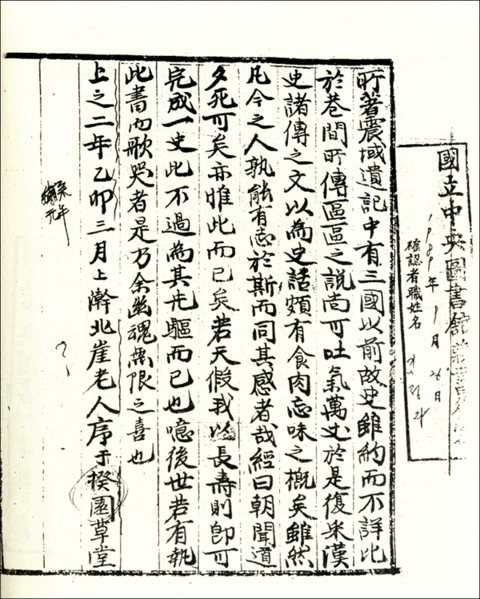 國立中央圖書館藏書
確認者職姓名
所著震域遺記中有三國以前故史雖約而不詳比
於巷間所傳區區之說尚可吐氣萬丈於是復采漢
史諸傳之文以為史話頗有食肉忘味之概矣雖然
凡今之人孰能有志於斯而同其感者哉經曰朝聞道
夕死可矣亦惟此而已矣若天假我以長壽則即可
完成一史此不過為其先驅而已也噫後世若有執
此書而歌哭者是乃余幽魂無限之喜也
上之二年乙卯三月上澣北崖老人序于揆園草堂